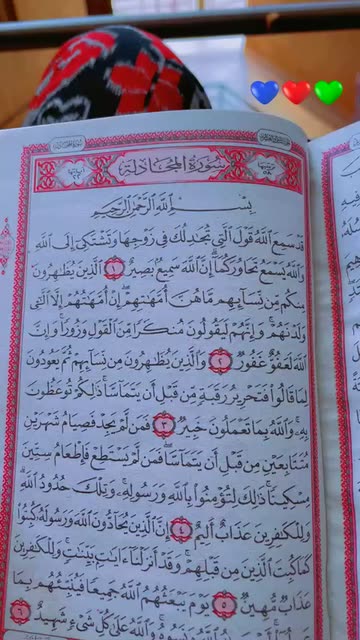 سُورَةُ المُجَادلَةِ
بِسْمِ اللَّهِ الرَّحْمَٰنِ الرَّحِيمِ
قَدْ سَمِعَ اللَّهُ قَوْلَ الَّتِي تُجَادِلُكَ فِي زَوْجِهَا وَتَشْتَكِي إِلَى اللَّهِ
وَاللَّهُ يَسْمَعُ تَحَاوُرَكُمَا إِنَّ اللَّهَ سَمِيعٌ بَصِيرٌ ١ الَّذِينَ يُظَاهِرُونَ
مِنكُم مِّن نِّسَائِهِم مَّا هُنَّ أُمَّهَاتِهِمْ إِنْ أُمَّهَاتُهُمْ إِلَّا اللَّائِي
وَلَدْنَهُمْ وَإِنَّهُمْ لَيَقُولُونَ مُنكَرًا مِّنَ الْقَوْلِ وَزُورًا وَإِنَّ
اللَّهَ لَعَفُوٌّ غَفُورٌ ٢ وَالَّذِينَ يُظَاهِرُونَ مِن نِّسَائِهِمْ ثُمَّ يَعُودُونَ
لِمَا قَالُوا فَتَحْرِيرُ رَقَبَةٍ مِّن قَبْلِ أَن يَتَمَاسَّا ذَٰلِكُمْ تُوعَظُونَ
بِهِ وَاللَّهُ بِمَا تَعْمَلُونَ خَبِيرٌ ٣ فَمَن لَّمْ يَجِدْ فَصِيَامُ شَهْرَيْنِ
مُتَتَابِعَيْنِ مِن قَبْلِ أَن يَتَمَاسَّا فَمَن لَّمْ يَسْتَطِعْ فَإِطْعَامُ سِتِّينَ
مِسْكِينًا ذَٰلِكَ لِتُؤْمِنُوا بِاللَّهِ وَرَسُولِهِ وَتِلْكَ حُدُودُ اللَّهِ
وَلِلْكَافِرِينَ عَذَابٌ أَلِيمٌ ٤ إِنَّ الَّذِينَ يُحَادُّونَ اللَّهَ وَرَسُولَهُ كُبِتُوا
كَمَا كُبِتَ الَّذِينَ مِن قَبْلِهِمْ وَقَدْ أَنزَلْنَا آيَاتٍ بَيِّنَاتٍ وَلِلْكَافِرِينَ
عَذَابٌ مُّهِينٌ ٥ يَوْمَ يَبْعَثُهُمُ اللَّهُ جَمِيعًا فَيُنَبِّئُهُم بِمَا
وَنَسُوهُ وَاللَّهُ عَلَىٰ كُلِّ شَيْءٍ شَهِيدٌ ٦